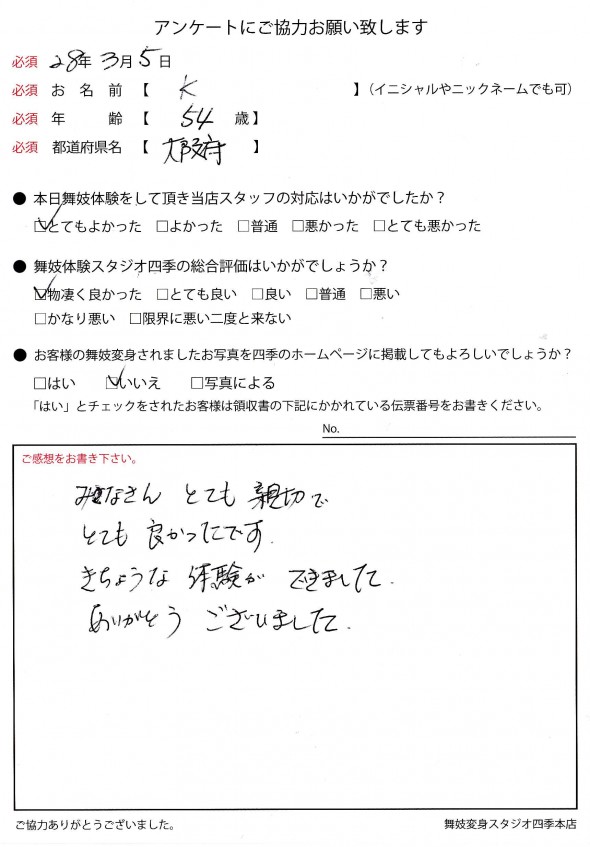 アンケートにご協力お願い致します
必須 28年 3月 5日
必須 お 名 前 【 K 】（イニシャルやニックネームでも可）
必須 年 齢 【 54 歳】
必須 都道府県名 【 大阪府 】
● 本日舞妓体験をして頂き当店スタッフの対応はいかがでしたか？
☑とてもよかった □よかった □普通 □悪かった □とても悪かった
● 舞妓体験スタジオ四季の総合評価はいかがでしょうか？
☑物凄く良かった □とても良い □良い □普通 □悪い
□かなり悪い □限界に悪い二度と来ない
● お客様の舞妓変身されましたお写真を四季のホームページに掲載してもよろしいでしょうか？
□はい ☑いいえ □写真による
「はい」とチェックをされたお客様は領収書の下記にかかれている伝票番号をお書きください。
No.
ご感想をお書き下さい。
みなさん とても 親切で
とても 良かったです.
きちょうな 体験が できました.
ありがとう ございました.
ご協力ありがとうございました。
舞妓変身スタジオ四季本店